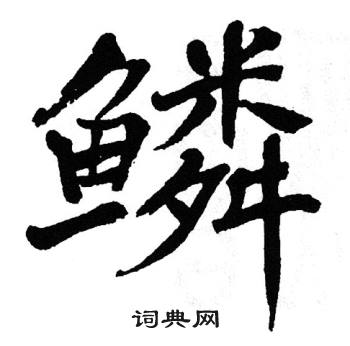 鳞
词典网